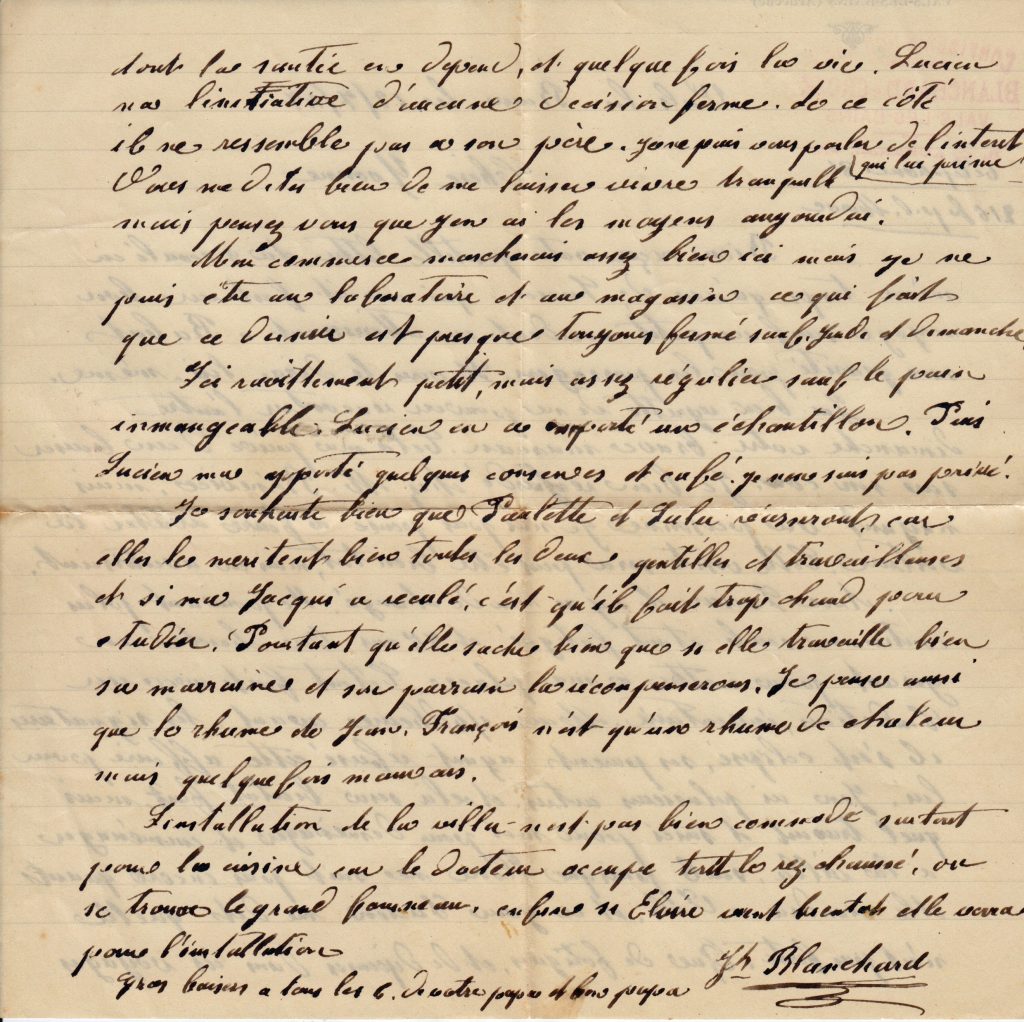 dont la santée en depend, et quelque fois la vie. Lucien
na linitiative d'aucune decision ferme. de ce côté
il ne ressemble pas a son père. je ne puis vous parler de l'interet
qui lui prime
Vous me dites bien de me laisser vivre tranquille
mais pensez vous que jen ai les moyens aujourdui.
Mon commerce marcherais assez bien ici mais je ne
puis être au laboratoire et au magassin ce qui fait
que ce dernier est presque toujours fermé sauf. Jeudi et dimanche
Ici ravittlement petit, mais assez régulier sauf le pain
inmangeable. Lucien en a emporté un échantillon. Puis
Lucien ma apporté quelques conserves et café. je ne suis pas privé.
Je souhaite bien que Paulette et Lulu réussiront, car
elles le meritent bien toutes les deux gentilles et travailleuses
et si ma Jacqui a reculé, c'est qu'il fait trop chaud pour
etudier. Pourtant qu'elle sache bien que si elle travaille bien
sa marraine et son parrain la récompenserons. Je pense aussi
que le rhume de Jean. François n'est qu'un rhume de chaleur
mais quelque fois mauvais.
L'installation de la villa n'est pas bien commode surtout
pour la cuisine car le docteur occupe tout le rez. chaussé, ou
se trouve le grand fourneau. enfin si Elvire vient bientot elle verra
pour l'installation
Gros baisers a tous les 6. de votre papa et bon papa
Jh Blanchard